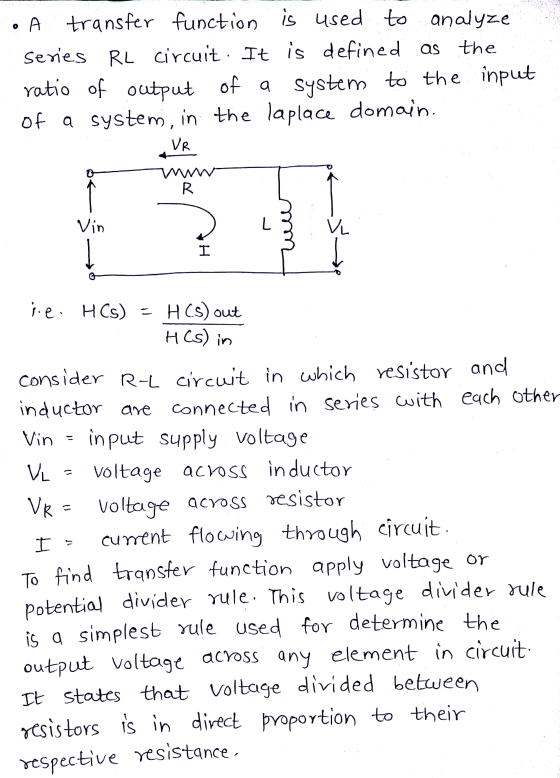 • A transfer function is used to analyze
series RL circuit. It is defined as the
ratio of output of a system to the input
of a system, in the laplace domain.
VR
R
Vin
I
L
VL
i.e. H(s) = H(s) out
H(s) in
consider R-L circuit in which resistor and
inductor are connected in series with each other
Vin = input supply voltage
VL = voltage across inductor
VR = voltage across resistor
I = current flowing through circuit.
To find transfer function apply voltage or
potential divider rule. This voltage divider rule
is a simplest rule used for determine the
output voltage across any element in circuit.
It states that voltage divided between
resistors is in direct proportion to their
respective resistance.